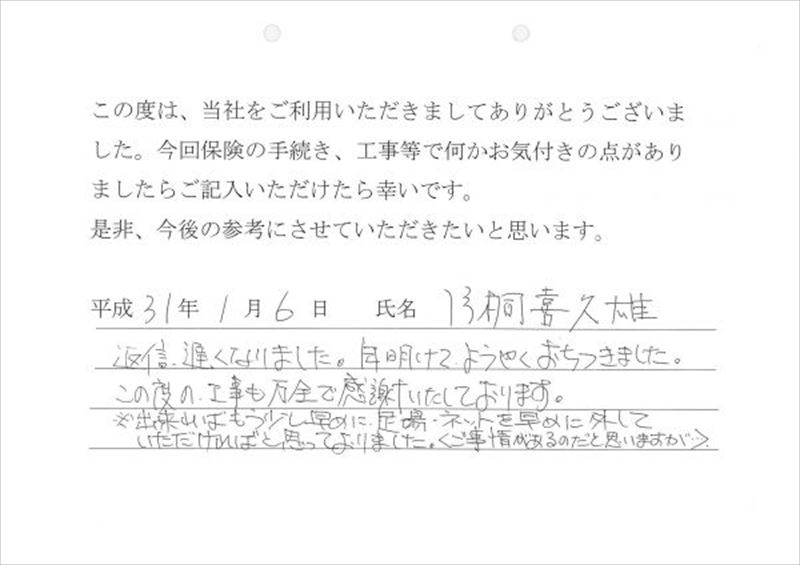 この度は、当社をご利用いただきましてありがとうございま
した。今回保険の手続き、工事等で何かお気付きの点があり
ましたらご記入いただけたら幸いです。
是非、今後の参考にさせていただきたいと思います。
平成31年1月6日 氏名 桐喜久雄
返信遅くなりました。年明けて、ようやくおちつきました。
この度の工事も万全で感謝いたしております。
※出来ればもう少し早めに足場・ネットを早めに外して
いただければと思っておりました。<ご事情があるのだと思いますが…>